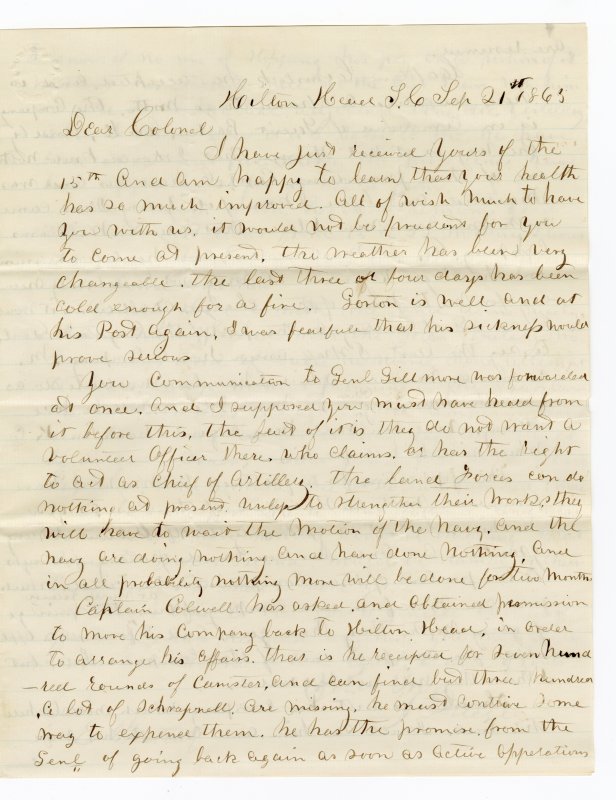 Hilton Head, S.C Sep 21st 1863
Dear Colonel
I have just received yours of the
15th And am happy to learn that your health
has so much improved. All of wish much to have
you with us, it would not be prudent for you
to come at present, the weather has been very
changeable. the last three or four days has been
cold enough for a fire. Gorton is well and at
his Post again, I was fearfull that his sickness would
prove serious
You Communication to Genl Gillmore was forwarded
at once. And I supposed you must have heard from
it before this, the fact of it is they do not want a
volunteer Officer there, who claims, or has the right
to act as Chief of Artillery. the land Forces can do
nothing at present unless to strengthen their works, they
will have to wait the motion of the Navy. And the
Navy are doing nothing. And have done Nothing. And
in all probability nothing more will be done for two Months
Captain Colwell has asked, and obtained permission
to move his Company back to Hilton Head, in order
to arrange his affairs. that is he receipted for seven hund
-red rounds of Canister, and can find but three hundred
, a lot of Schrapnell, are missing, he must contrive some
way to expend them. he has the promise from the
Genl, of going back again as soon as active opperations